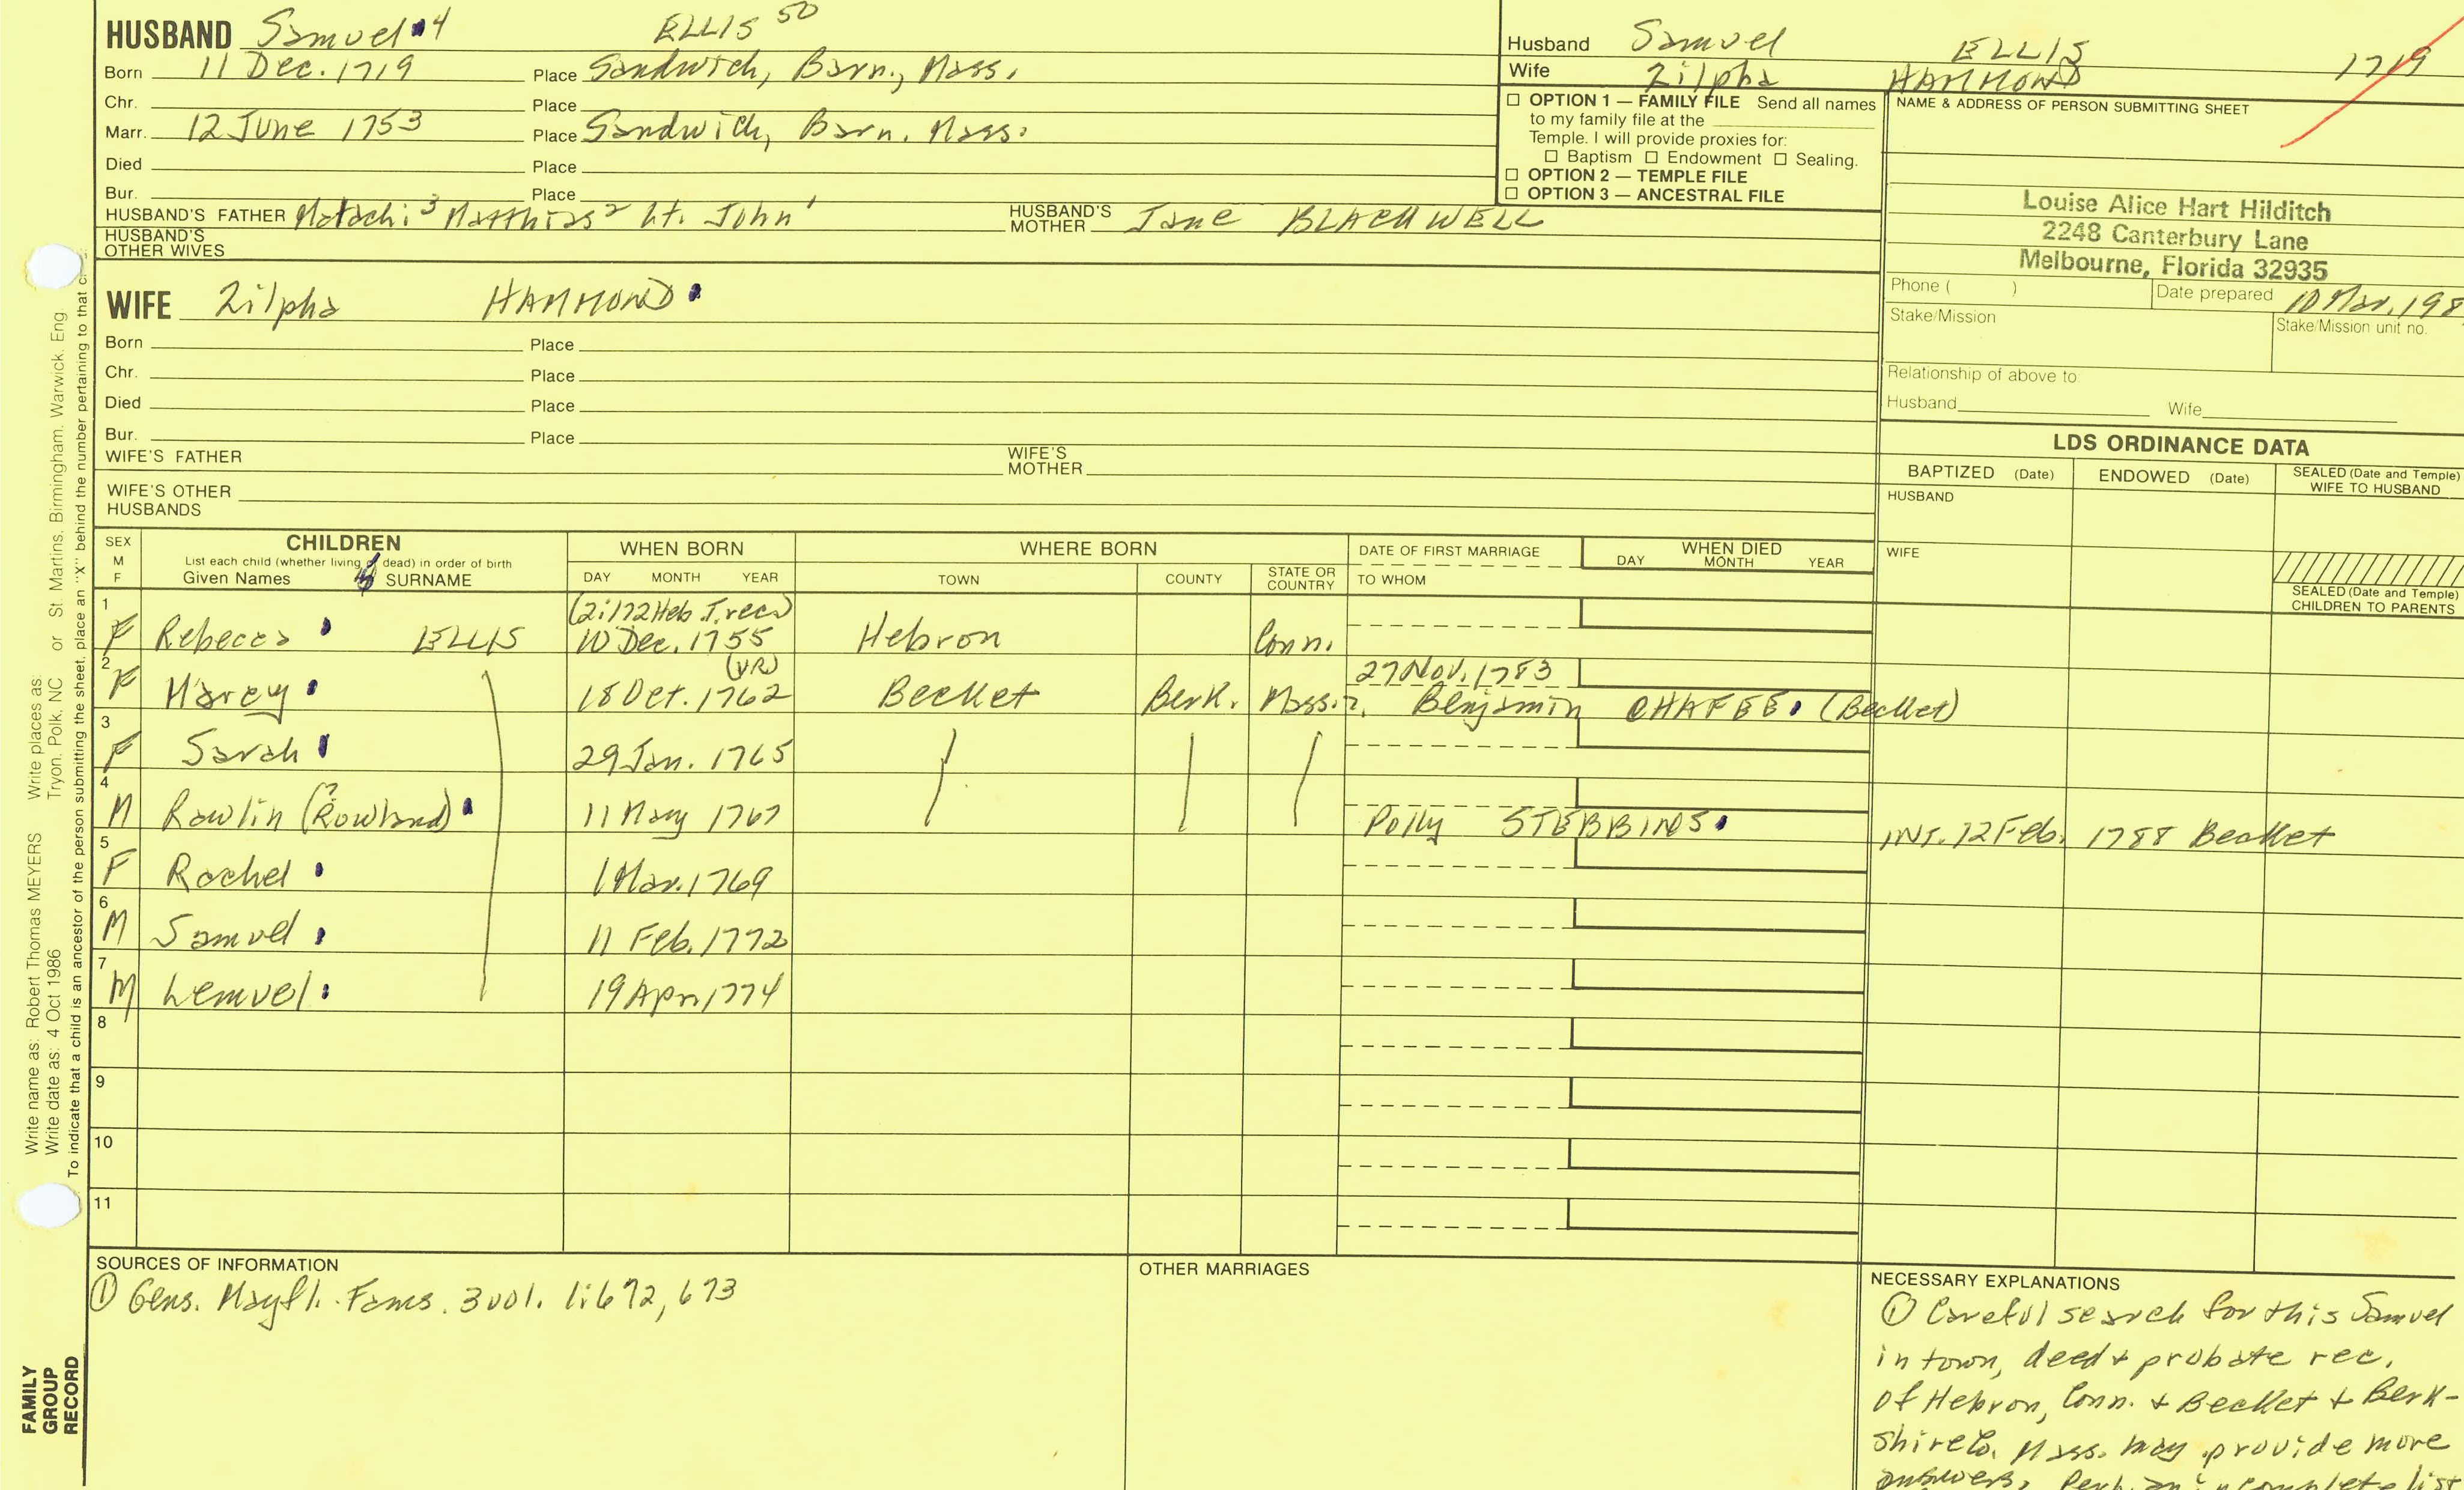 HUSBAND Samuel 4 ELLIS 50
Born 11 Dec. 1719 Place Sandwich, Barn., Mass.
Chr. Place
Marr. 12 June 1753 Place Sandwich, Barn. Mass.
Died Place
Bur. Place
HUSBAND'S FATHER Matachi 3 Matthias 2 Lt. John 1 HUSBAND'S MOTHER Jane BLACKWELL
HUSBAND'S OTHER WIVES
WIFE Zilpha HAMMOND
Born Place
Chr. Place
Died Place
Bur. Place
WIFE'S FATHER WIFE'S MOTHER
WIFE'S OTHER HUSBANDS
Husband Samuel ELLIS 1719
Wife Zilpha HAMMOND
☐ OPTION 1 — FAMILY FILE Send all names
to my family file at the
Temple. I will provide proxies for:
☐ Baptism ☐ Endowment ☐ Sealing.
☐ OPTION 2 — TEMPLE FILE
☐ OPTION 3 — ANCESTRAL FILE
NAME & ADDRESS OF PERSON SUBMITTING SHEET
Louise Alice Hart Hilditch
2248 Canterbury Lane
Melbourne, Florida 32935
Phone ( ) Date prepared 10 Mar. 198
Stake/Mission Stake/Mission unit no.
Relationship of above to
Husband Wife
LDS ORDINANCE DATA
BAPTIZED (Date) ENDOWED (Date) SEALED (Date and Temple) WIFE TO HUSBAND
HUSBAND
WIFE
SEALED (Date and Temple)
CHILDREN TO PARENTS
SEX M F CHILDREN WHEN BORN WHERE BORN DATE OF FIRST MARRIAGE WHEN DIED
List each child (whether living or dead) in order of birth
Given Names SURNAME DAY MONTH YEAR TOWN COUNTY STATE OR COUNTRY TO WHOM DAY MONTH YEAR
(2:172 Heb. T. rec.)
1 F Rebecca ELLIS 10 Dec. 1755 Hebron Conn.
(VR) 27 Nov. 1783
2 F Marcy 18 Oct. 1762 Becket Berk. Mass. Benjamin CHAFEE (Becket)
3 F Sarah 29 Jan. 1765
4 M Rowlin (Rowland?) 11 May 1767 Polly STEBBINS INT. 12 Feb. 1788 Becket
5 F Rachel 1 Mar. 1769
6 M Samuel 11 Feb. 1772
7 M Lemuel 19 Apr. 1774
8
9
10
11
SOURCES OF INFORMATION
① Gens. Mayfl. Fams. 3 vol. 1:672, 673
OTHER MARRIAGES
NECESSARY EXPLANATIONS
① Careful search for this Samuel
in town, deed & probate rec.
of Hebron, Conn. & Becket & Berk-
shire Co. Mass. may provide more
answers. Perh. an incomplete list
Write name as: Robert Thomas MEYERS Write places as: Tryon, Polk, NC or St. Martins, Birmingham, Warwick, Eng
Write date as: 4 Oct 1986
To indicate that a child is an ancestor of the person submitting the sheet, place an "X" behind the number pertaining to that
FAMILY
GROUP
RECORD